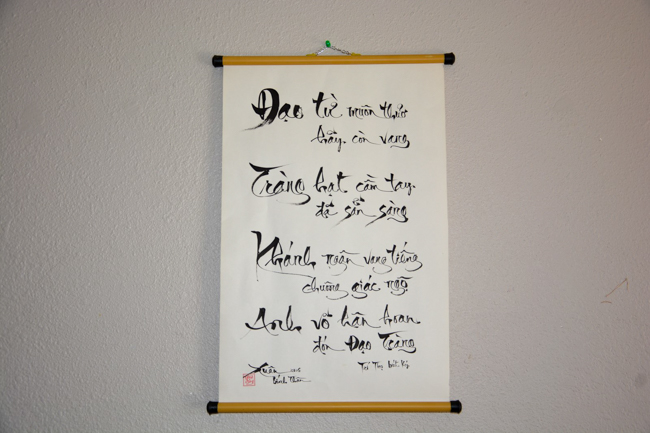 Đạo từ muôn thuở
hãy còn vang
Tràng hạt cầm tay
đã sẵn sàng
Khánh ngân vang tiếng
chuông giác ngộ
Anh về hân hoan
đón Đạo Tràng
Xuân
Bính Thân